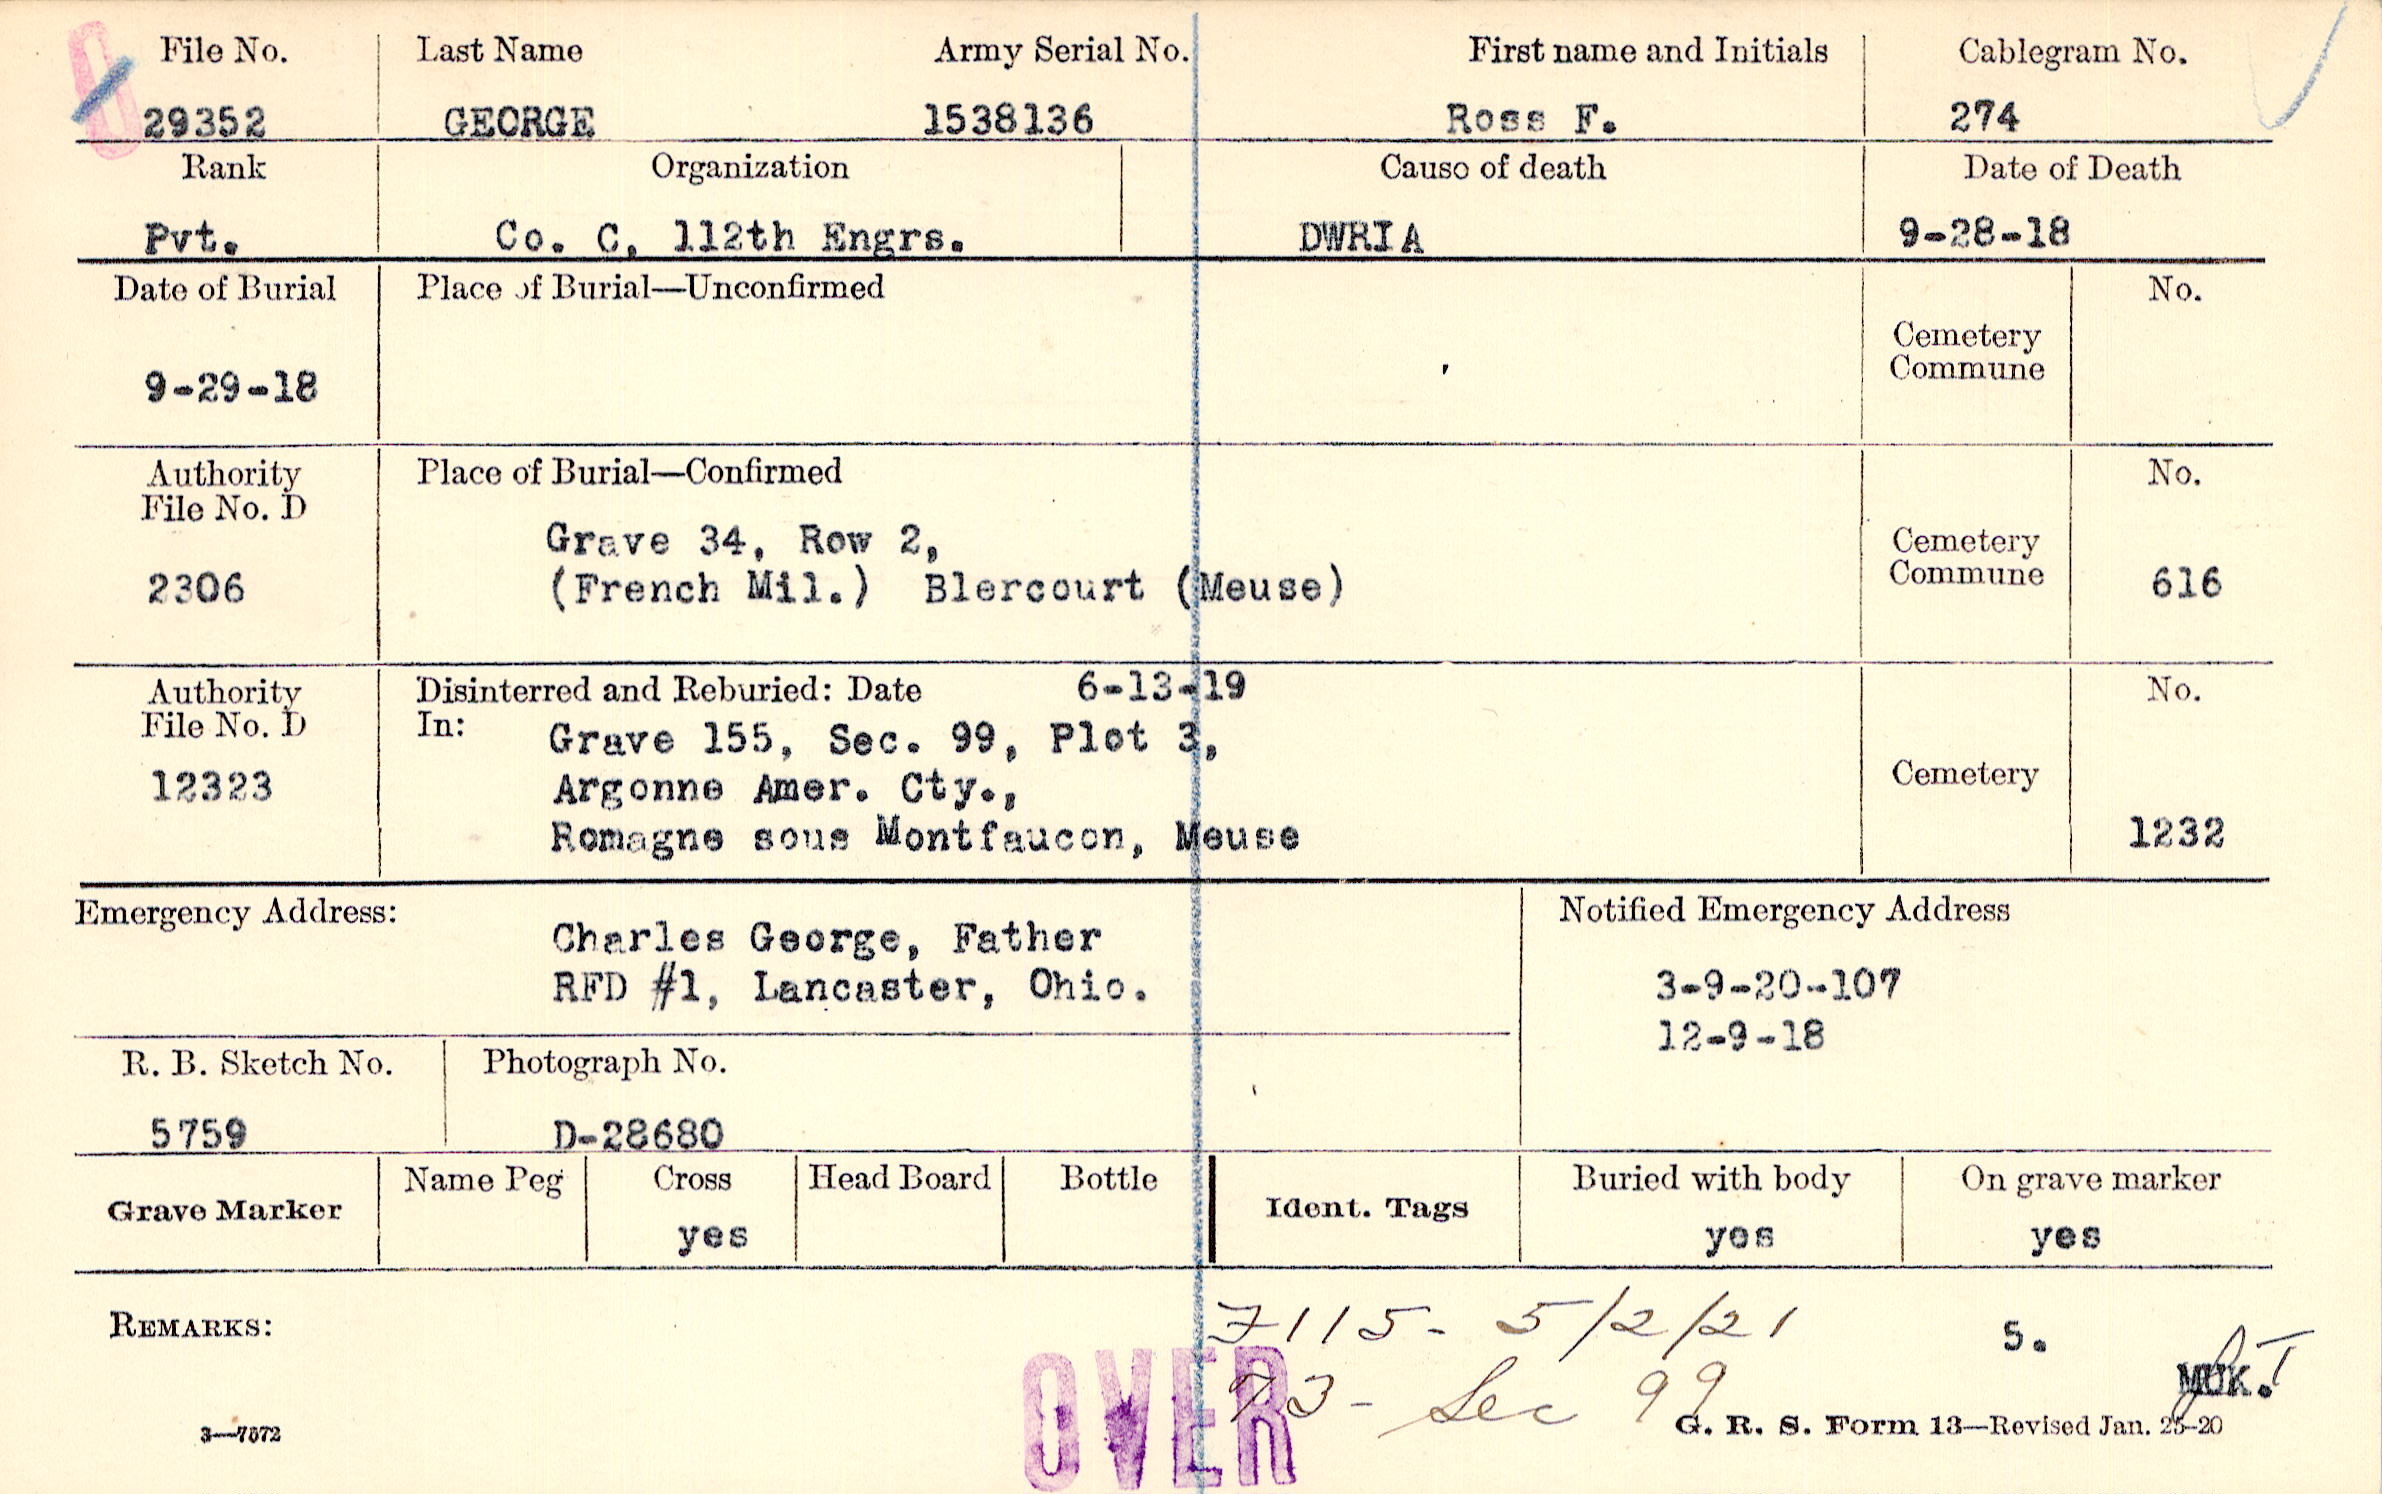 File No. Last Name Army Serial No. First name and Initials Cablegram No.
29352 GEORGE 1538136 Ross F. 274
Rank Organization Cause of death Date of Death
Pvt. Co. C, 112th Engrs. DWRIA 9-28-18
Date of Burial Place of Burial—Unconfirmed No.
Cemetery
Commune
9-29-18
Authority Place of Burial—Confirmed No.
File No. D
Grave 34, Row 2, Cemetery
2306 (French Mil.) Blercourt (Meuse) Commune 616
Authority Disinterred and Reburied: Date 6-13-19 No.
File No. D In: Grave 155, Sec. 99, Plot 3,
12323 Argonne Amer. Cty., Cemetery
Romagne sous Montfaucon, Meuse 1232
Emergency Address: Notified Emergency Address
Charles George, Father
RFD #1, Lancaster, Ohio. 3-9-20-107
12-9-18
R. B. Sketch No. Photograph No.
5759 D-28680
Grave Marker Name Peg Cross Head Board Bottle Ident. Tags Buried with body On grave marker
yes yes yes
REMARKS: 7115- 5/2/21 5.
OVER 73- Sec 99 MUK.
3—7572 G. R. S. Form 13—Revised Jan. 25-20